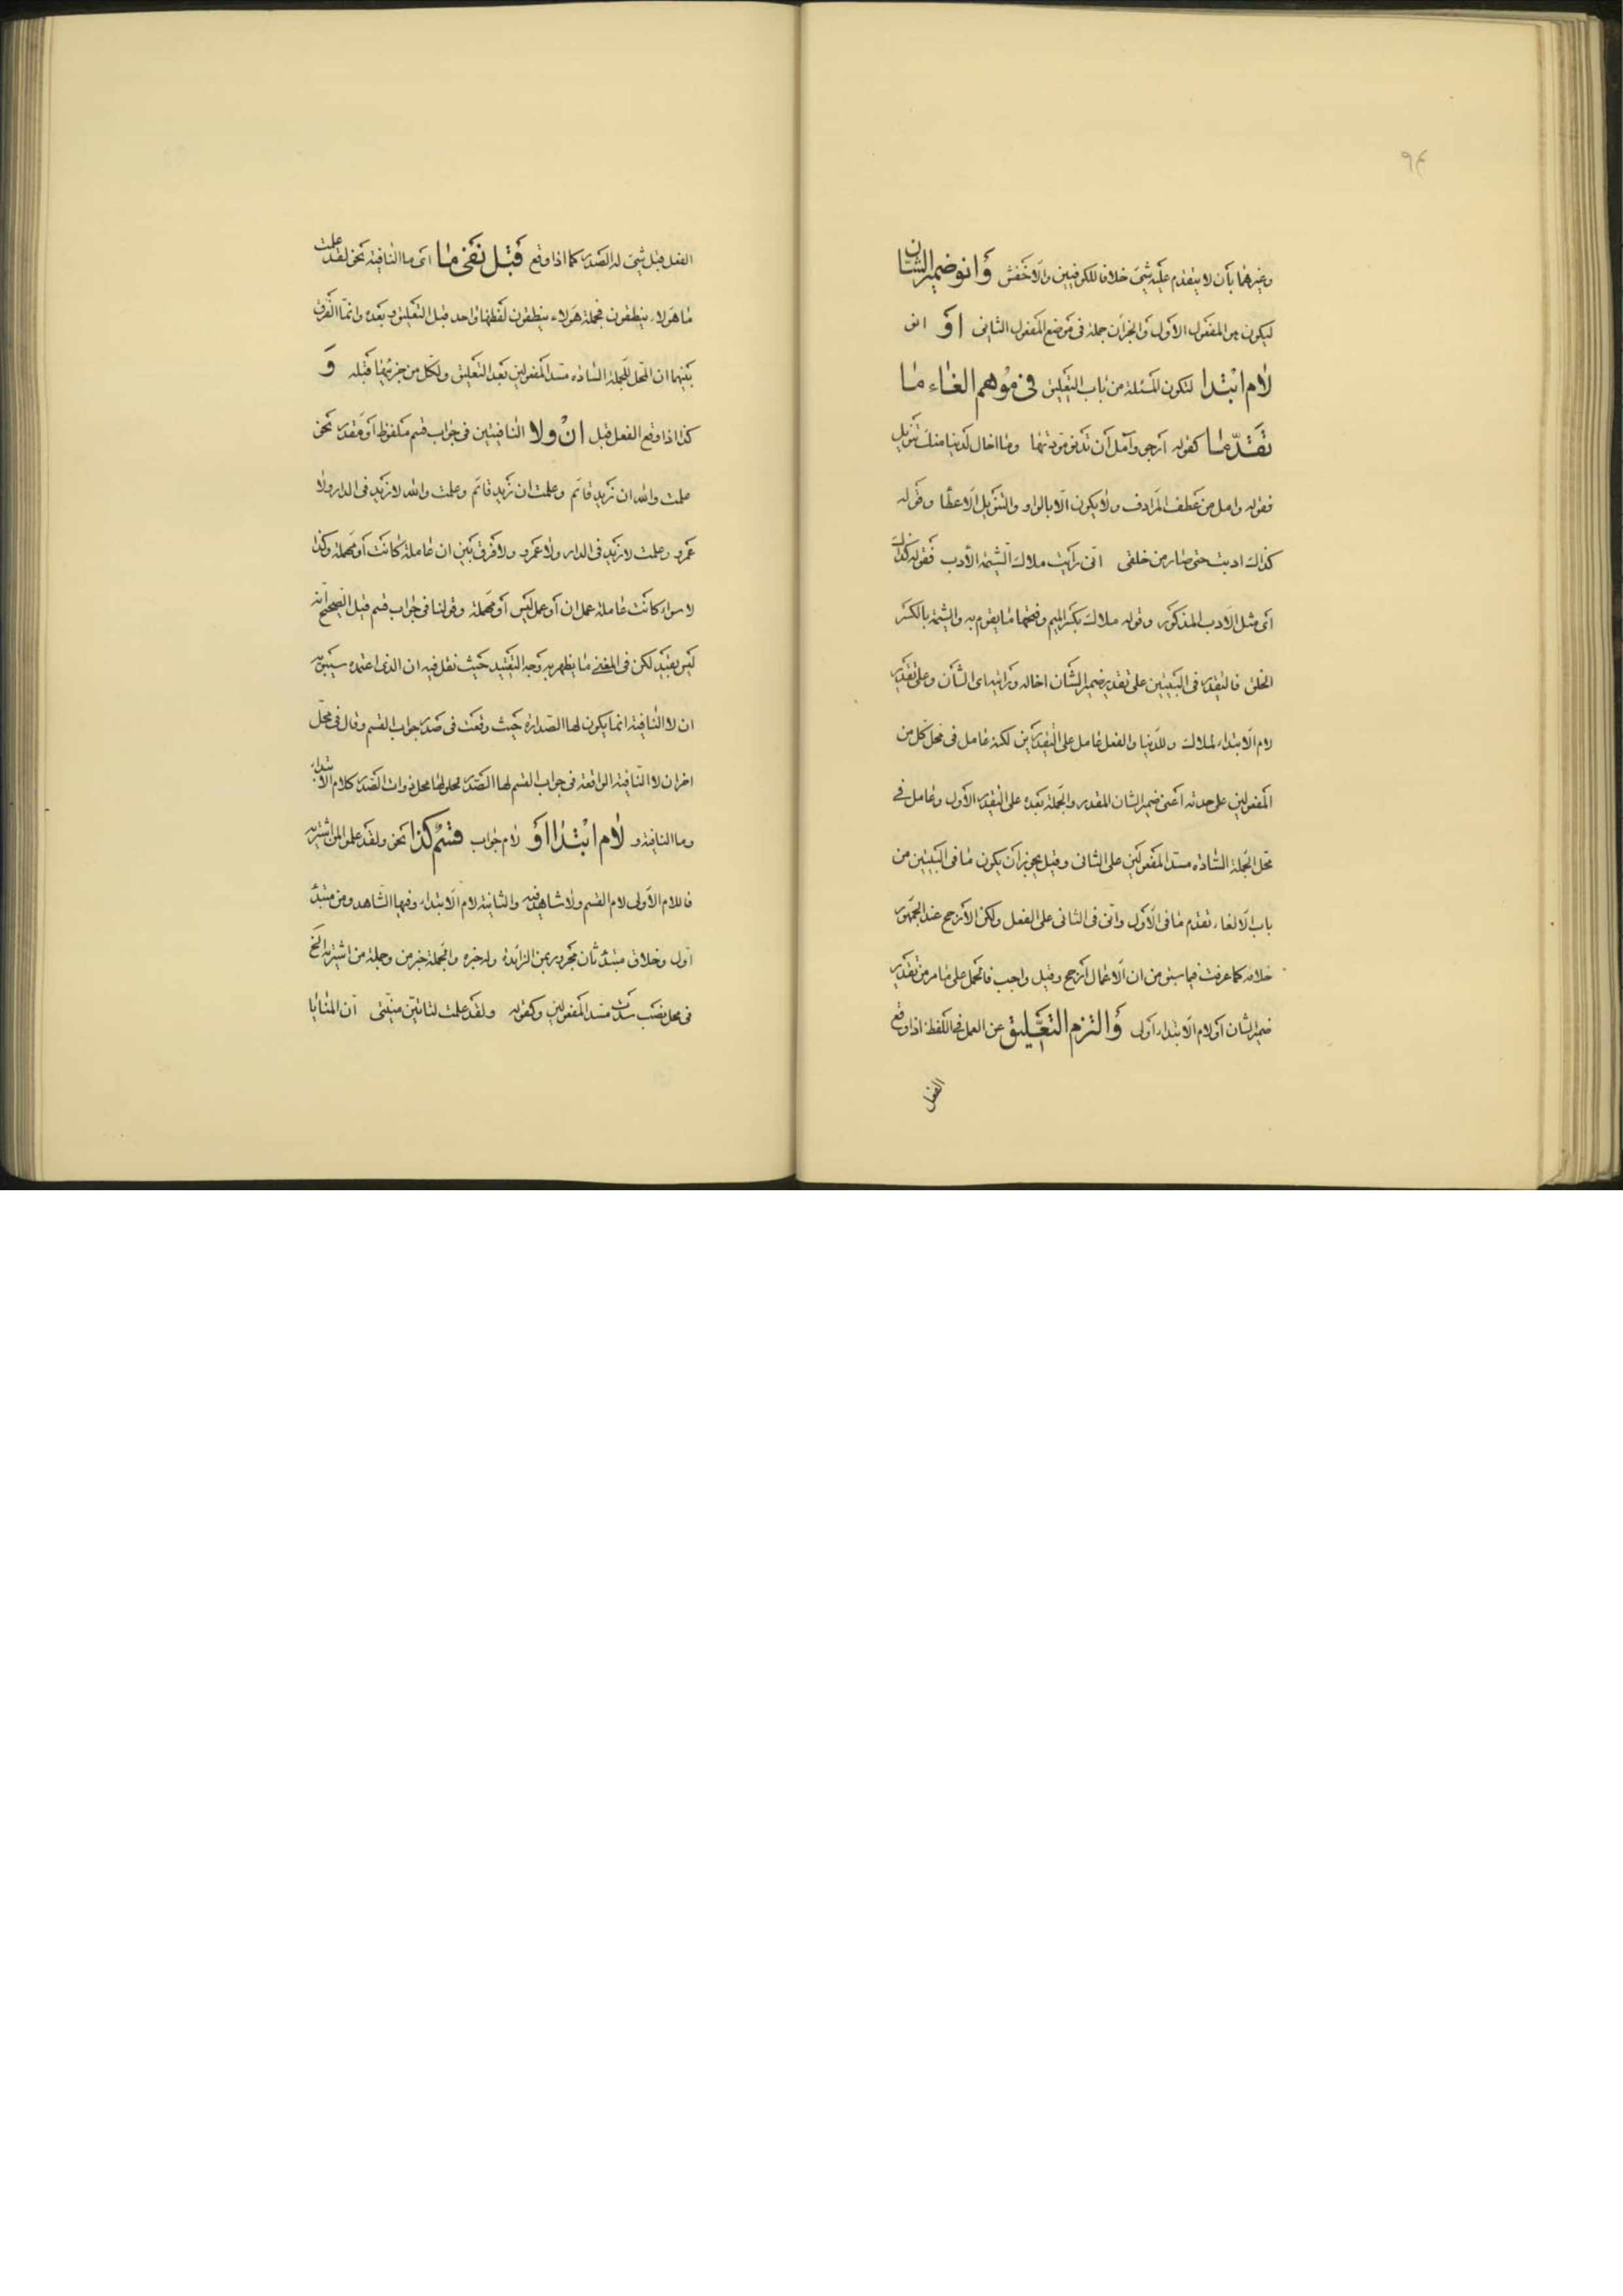 ٩٤
وغيرهما بأن لا يتقدم عليه شئ خلافا للكوفيين والاخفش وَانو ضمير الشان
ليكون هو المفعول الاول والجزآن جملة في موضع المفعول الثاني اَوْ انو
لام ابْتدا لتكون المسئلة من باب التعليق في مُوْهم الغاء ما
تقدّما كقوله ارجو وآمل أن تدنو مودتها وما اخال لدينا منك تنويل
فقوله وامل من عطف المرادف ولا يكون الا بالواو والتنويل الاعطا وقوله
كذاك ادبت حتى صار من خلقى انى رايت ملاك الشيمة الأدب فقوله كذاك
أى مثل الادب المذكور وقوله ملاك بكسر الميم وفتحها ما يقوم به والشيمة بالكسر
الخلق فالتقدير فى البيتين على تقدير ضمير الشان اخاله ورايته اى الشان وعلى تقدير
لام الابتداء لملاك وللدينا والفعل عامل على التقديرين لكنه عامل فى محل كل من
المفعولين على حدته اعنى ضمير الشان المقدر والجملة بعده على التقدير الاول وعامل فى
محل الجملة السادة مسد المفعولين على الثانى وقيل يجوز أن يكون ما فى البيتين من
باب الالغاء لتقدم ما فى الاول وانى فى الثانى على الفعل ولكن الارجح عند الجمهور
خلافه كما عرفت فيما سبق من ان الاعمال ارجح وقيل واجب فالحمل على ما مر من تقدير
ضمير الشان او لام الابتداء اولى وَالتزم التعليق عن العمل فى اللفظ اذا وقع
الفعل
الفعل قبل شئ له الصدر كما اذا وقع قبْل نفى ما اى ما النافية نحو لقد علمت
ما هولاء ينطقون فجملة هولاء ينطقون لفظها واحد قبل التعليق وبعده وانما الفرق
بينهما ان المحل للجملة السادة مسد المفعولين بعد التعليق ولكل من جزئيها قبله وَ
كذا اذا وقع الفعل قبل انْ ولا النافيتين فى جواب قسم ملفوظ أو مقدر نحو
علمت والله ان زيد قائم وعلمت ان زيد قائم وعلمت والله لا زيد فى الدار ولا
عمرو وعلمت لا زيد فى الدار ولا عمرو ولا فرق بين ان عاملة كانت أو مهملة وكذا
لا سواء كانت عاملة عمل ان أو عمل ليس أو مهملة وقولنا فى جواب قسم قيل الصحيح أنه
ليس بقيد لكن فى المغنى ما يظهر به وجه التقييد حيث نقل فيه ان الذى اعتمده سيبويه
ان لا النافية انما يكون لها الصدارة حيث وقعت فى صدر جواب القسم وقال فى محل
اخر ان لا النافية الواقعة فى جواب القسم لها الصدر لحلولها محل ذوات الصدر كلام الابتداء
وما النافية و لام ابْتدا اَوْ لام جواب قسْم كذا نحو ولقد علموا لمن اشتريه
فاللام الأولى لام القسم ولا شاهد فيه والثانية لام الابتداء وفيها الشاهد ومن مبتدأ
اول وخلاق مبتدأ ثان مجرور بمن الزائدة وله خبره والجملة خبر من وجملة من اشتريه الخ
فى محل نصب سدت مسد المفعولين وكقوله ولقد علمت لتاتين منيتى ان المنايا